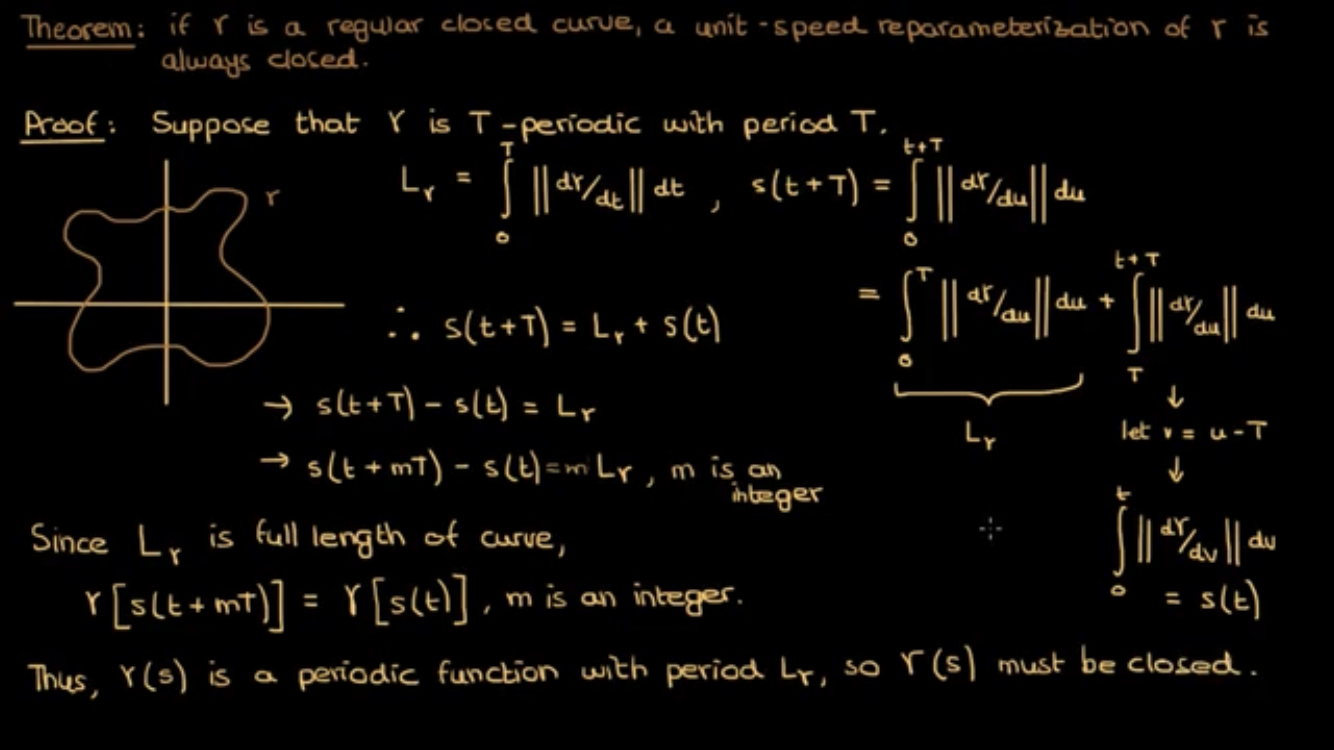 Theorem: if γ is a regular closed curve, a unit-speed reparameterization of γ is
always closed.
Proof: Suppose that γ is T-periodic with period T.
γ
L_γ = ∫_0^T ||dγ/dt|| dt , s(t+T) = ∫_0^{t+T} ||dγ/du|| du
= ∫_0^T ||dγ/du|| du + ∫_T^{t+T} ||dγ/du|| du
∴ s(t+T) = L_γ + s(t)
L_γ
↓
let v = u-T
↓
∫_0^t ||dγ/dv|| dv
= s(t)
→ s(t+T) - s(t) = L_γ
→ s(t+mT) - s(t) = m L_γ , m is an
integer
Since L_γ is full length of curve,
γ[s(t+mT)] = γ[s(t)], m is an integer.
Thus, γ(s) is a periodic function with period L_γ, so γ(s) must be closed.